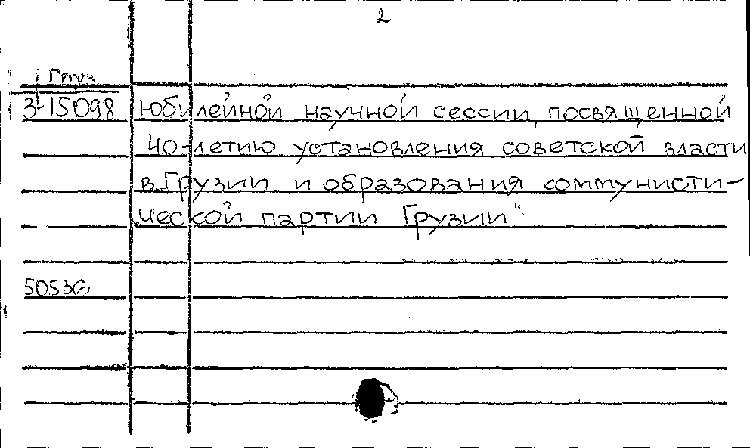 2
Груз
3-15098 юбилейной научной сессии, посвященной
40-летию установления советской власти
в Грузии и образования коммунисти-
ческой партии Грузии"